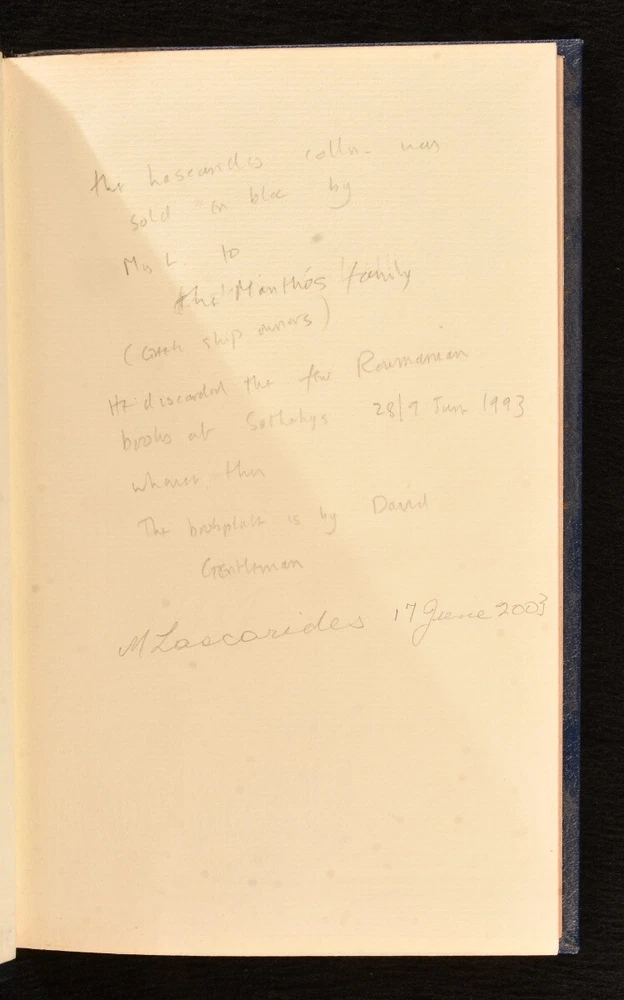 the Lascarides colln. was
sold en bloc by
Mrs L. to
the Manthós family
(Greek ship owners)
He discarded the few Roumanian
books at Sothebys 28/9 June 1993
whence this
The bookplate is by David
Gentleman
M Lascarides 17 June 2003